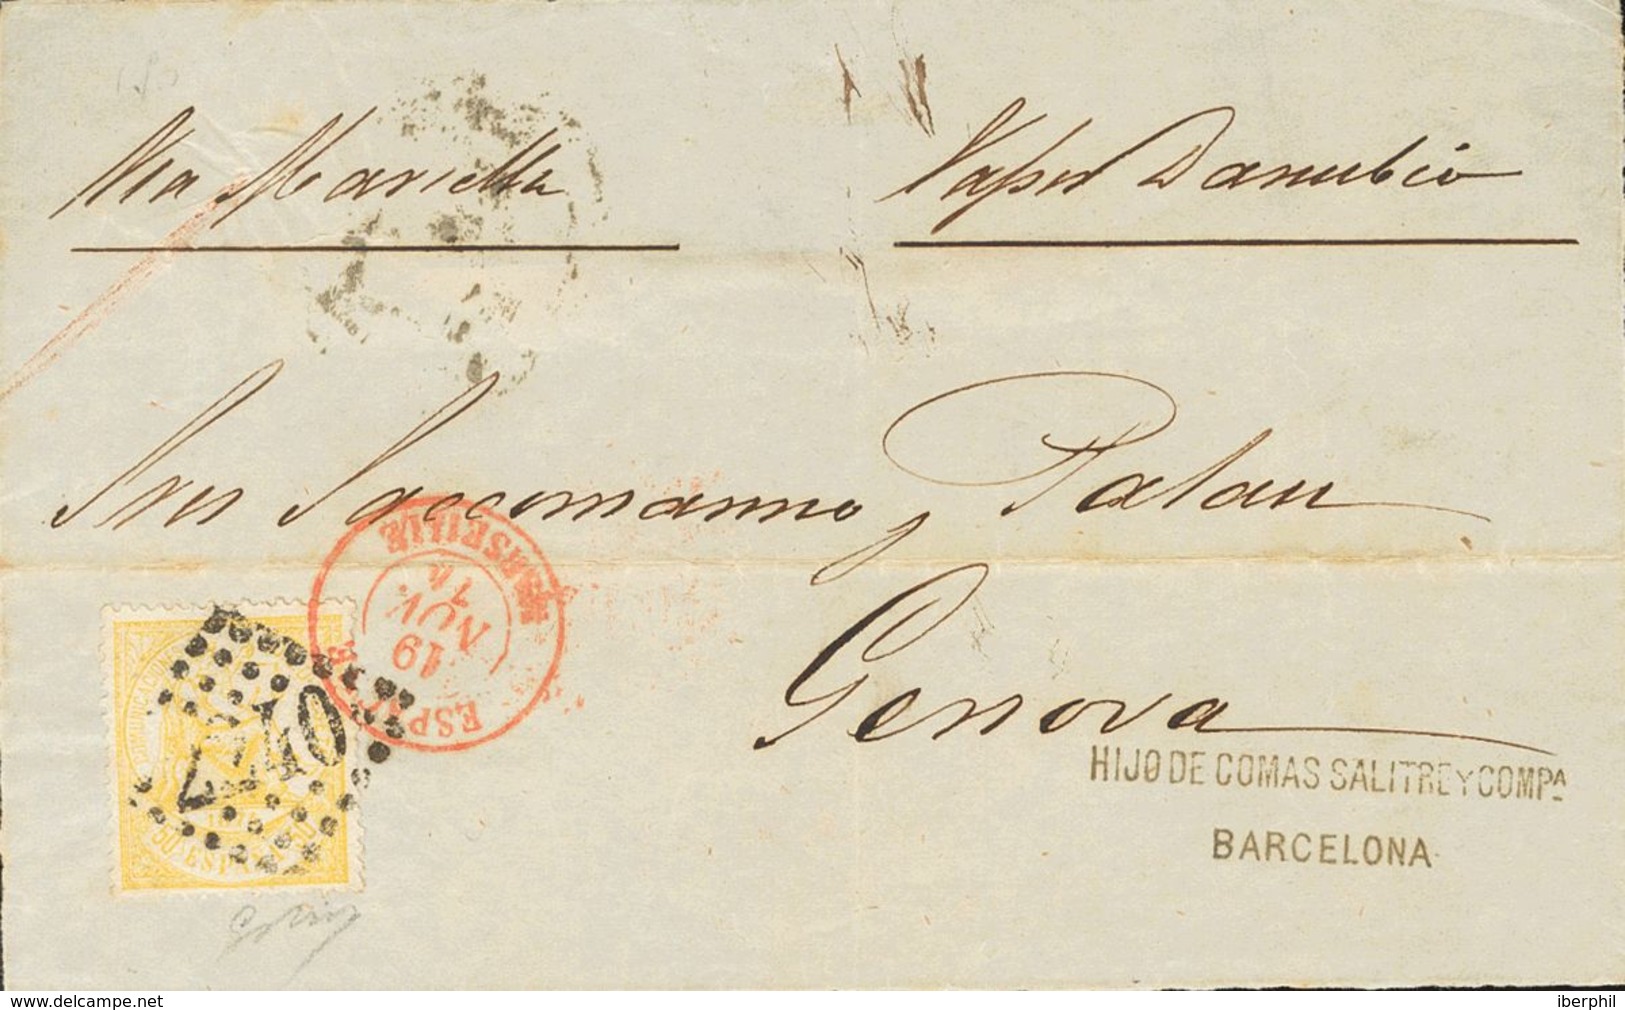 Via Marsella
Vapor Danubio
Sres Saccomanno y Palau
Genova
ESPAGNE
19
NOV.
74
MARSEILLE
2240
COMUNICACIONES
50 ESPAÑA 50
HIJO DE COMAS SALITRE Y COMPA
BARCELONA
delcampe.net
iberphil